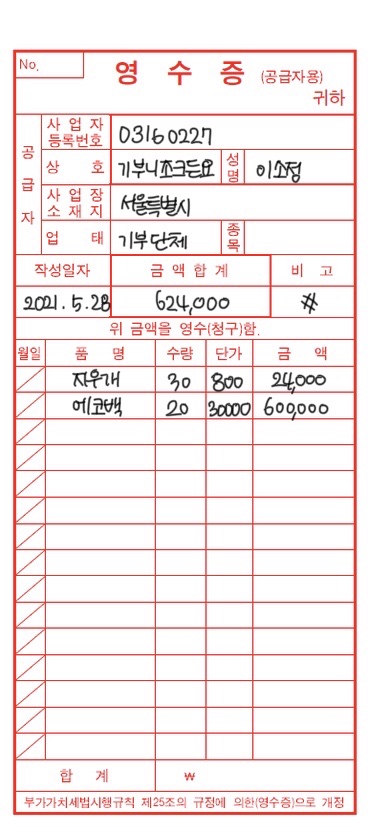 No.
영 수 증 (공급자용)
귀하
공급자
사업자등록번호 03160227
상 호 기부니조크든요 성명 이소정
사업장소재지 서울특별시
업 태 기부단체 종목
작성일자 금 액 합 계 비 고
2021.5.28 624,000 #
위 금액을 영수(청구)함.
월일 품 명 수량 단가 금 액
지우개 30 800 24,000
에코백 20 30000 600,000
합 계 ₩
부가가치세법시행규칙 제25조의 규정에 의한(영수증)으로 개정